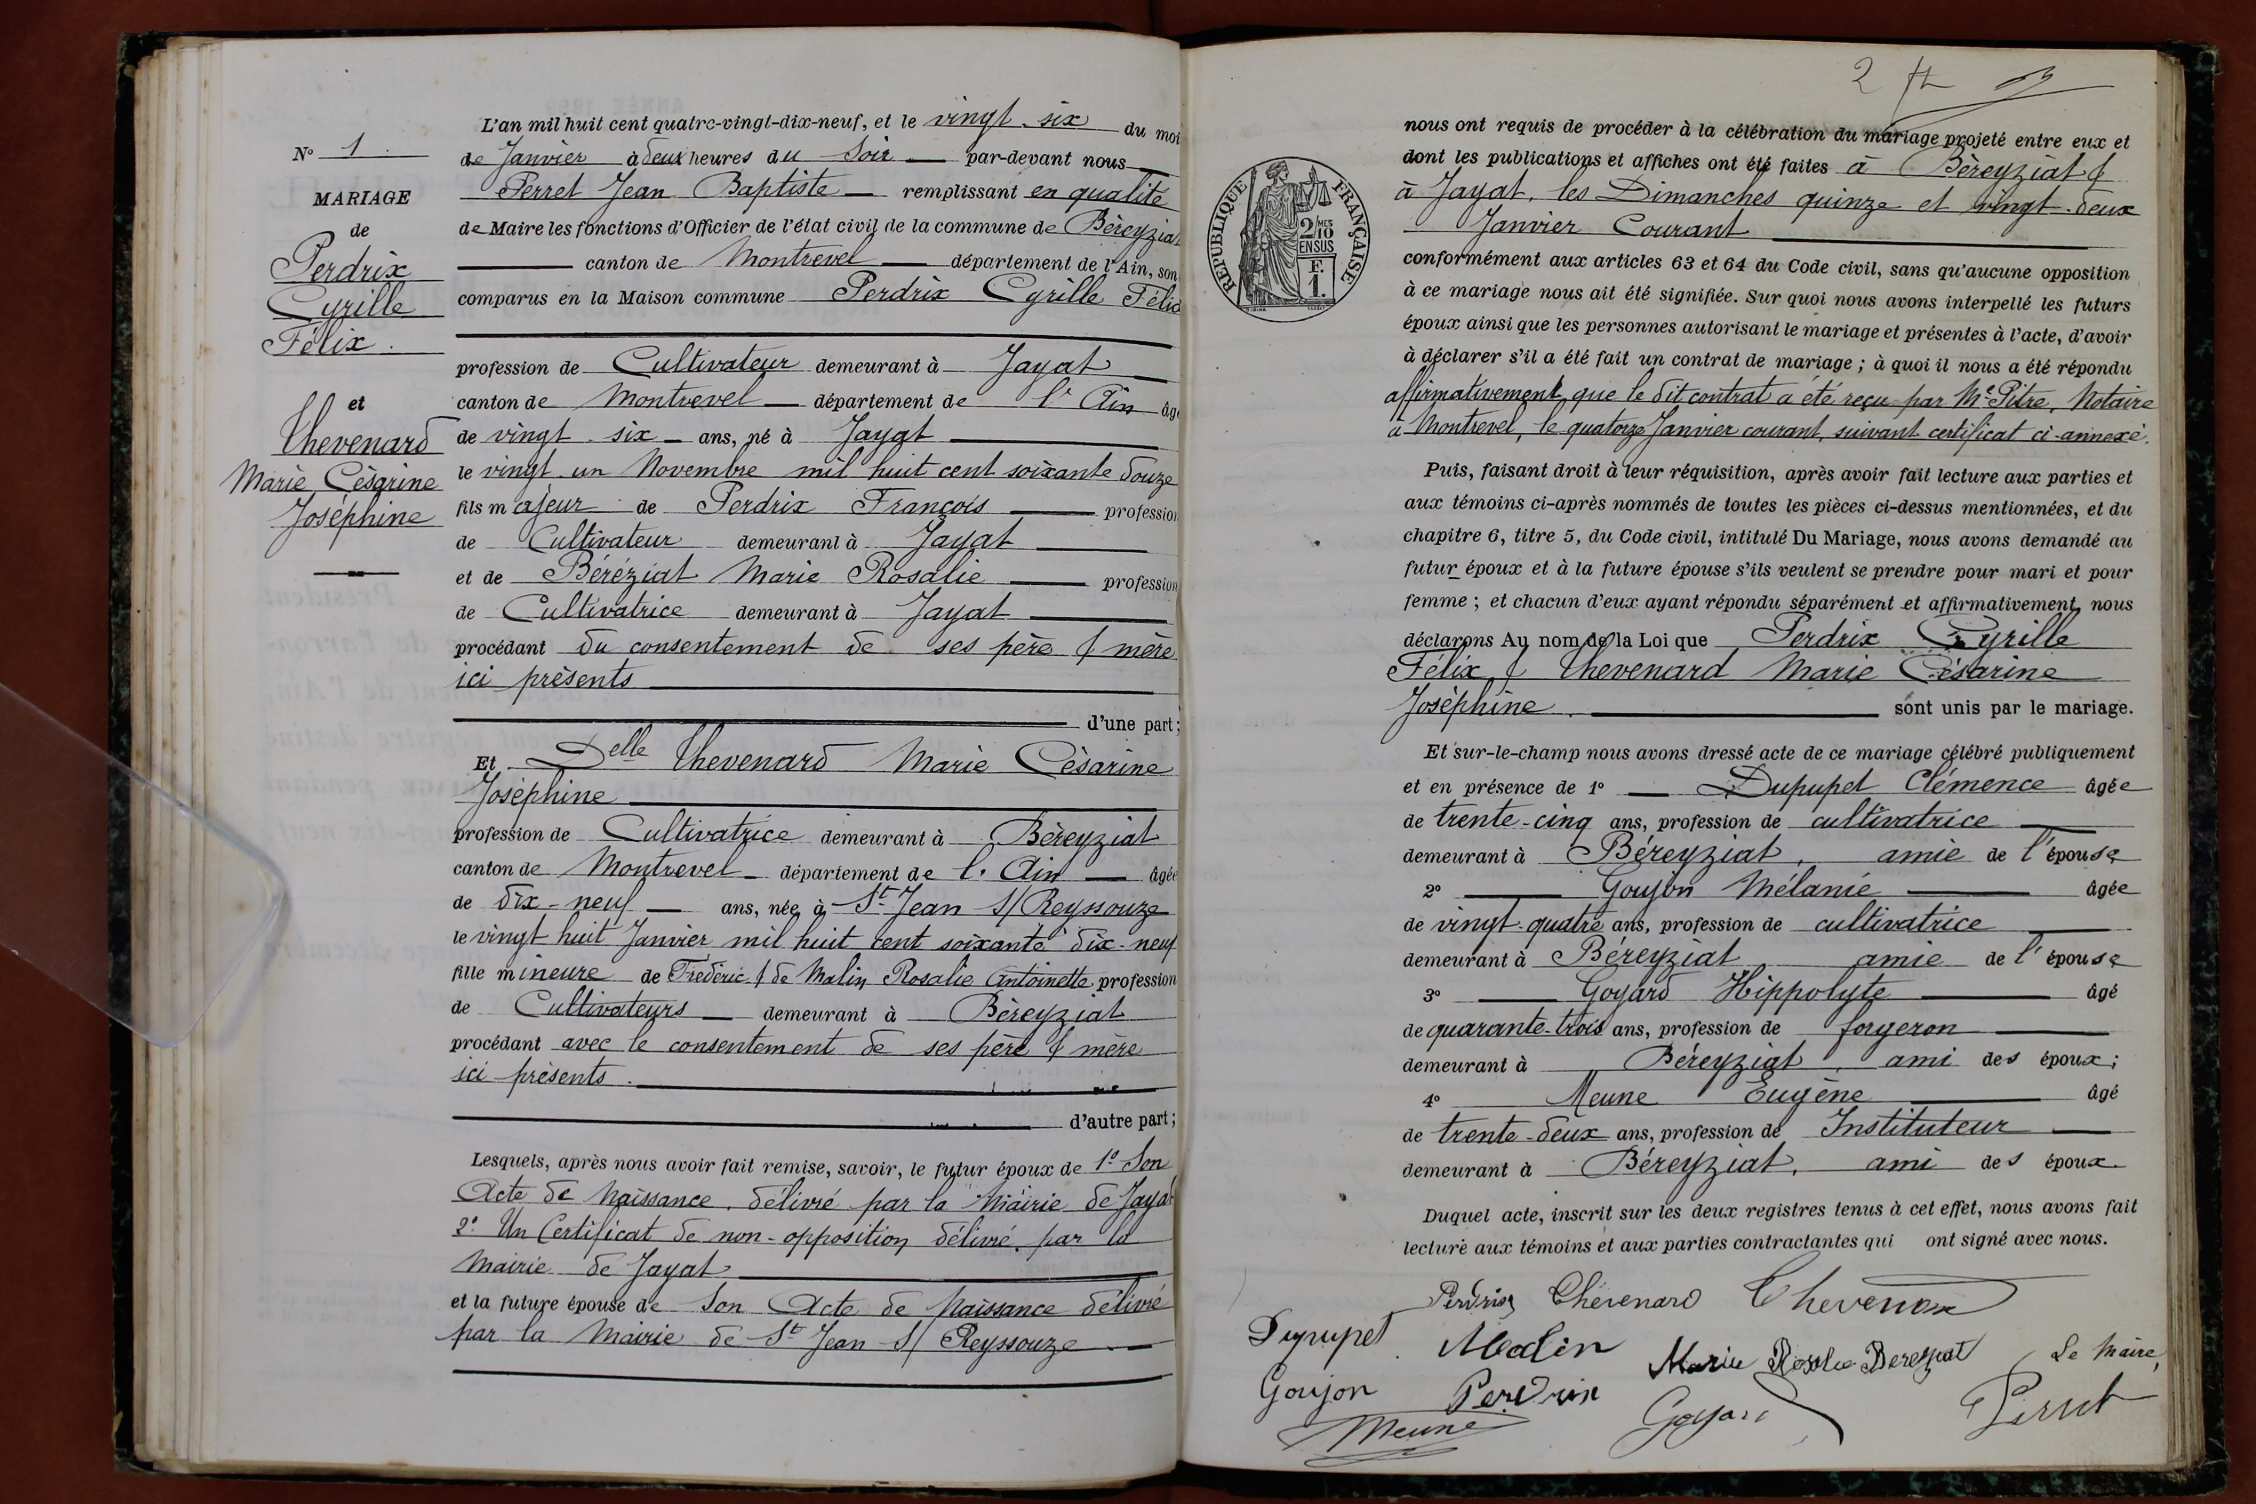 N° 1
MARIAGE
de
Perdrix
Cyrille
Félix.
et
Thevenard
Marie Césarine
Joséphine
L'an mil huit cent quatre-vingt-dix-neuf, et le vingt-six du moi
de Janvier à deux heures du Soir par-devant nous
Perret Jean Baptiste remplissant en qualité
de Maire les fonctions d'Officier de l'état civil de la commune de Béreyziat
canton de Montrevel département de l'Ain, son
comparus en la Maison commune Perdrix Cyrille Félix
profession de Cultivateur demeurant à Jayat
canton de Montrevel département de l'Ain âgé
de vingt-six ans, né à Jayat
le vingt un Novembre mil huit cent soixante douze
fils majeur de Perdrix François profession
de Cultivateur demeurant à Jayat
et de Béréziat Marie Rosalie profession
de Cultivatrice demeurant à Jayat
procédant du consentement de ses père & mère
ici présents
d'une part;
Et Delle Thevenard Marie Césarine
Joséphine
profession de Cultivatrice demeurant à Béreyziat
canton de Montrevel département de l'Ain âgée
de dix-neuf ans, née à St Jean s/ Reyssouze
le vingt huit Janvier mil huit cent soixante dix-neuf
fille mineure de Frédéric & de Malin Rosalie Antoinette profession
de Cultivateurs demeurant à Béreyziat
procédant avec le consentement de ses père & mère
ici présents.
d'autre part;
Lesquels, après nous avoir fait remise, savoir, le futur époux de 1° Son
Acte de Naissance, délivré par la Mairie de Jayat
2° Un Certificat de non-opposition délivré par la
Mairie de Jayat
et la future épouse de Son Acte de Naissance délivré
par la Mairie de St Jean s/ Reyssouze.
2
RÉPUBLIQUE FRANÇAISE
2/10 MES
EN SUS
F.
1.
nous ont requis de procéder à la célébration du mariage projeté entre eux et
dont les publications et affiches ont été faites à Béreyziat &
à Jayat, les Dimanches quinze et vingt-deux
Janvier Courant
conformément aux articles 63 et 64 du Code civil, sans qu'aucune opposition
à ce mariage nous ait été signifiée. Sur quoi nous avons interpellé les futurs
époux ainsi que les personnes autorisant le mariage et présentes à l'acte, d'avoir
à déclarer s'il a été fait un contrat de mariage; à quoi il nous a été répondu
affirmativement, que le dit contrat a été reçu par Me Pitre, Notaire
à Montrevel, le quatorze Janvier courant, suivant certificat ci-annexé.
Puis, faisant droit à leur réquisition, après avoir fait lecture aux parties et
aux témoins ci-après nommés de toutes les pièces ci-dessus mentionnées, et du
chapitre 6, titre 5, du Code civil, intitulé Du Mariage, nous avons demandé au
futur époux et à la future épouse s'ils veulent se prendre pour mari et pour
femme; et chacun d'eux ayant répondu séparément et affirmativement, nous
déclarons Au nom de la Loi que Perdrix Cyrille
Félix & Thevenard Marie Césarine
Joséphine. sont unis par le mariage.
Et sur-le-champ nous avons dressé acte de ce mariage célébré publiquement
et en présence de 1° Dupupet Clémence âgée
de trente-cinq ans, profession de cultivatrice
demeurant à Béreyziat, amie de l'épouse
2° Goujon Mélanie âgée
de vingt-quatre ans, profession de cultivatrice
demeurant à Béreyziat amie de l'épouse
3° Goyard Hippolyte âgé
de quarante-trois ans, profession de forgeron
demeurant à Béreyziat, ami des époux;
4° Meune Eugène âgé
de trente-deux ans, profession de Instituteur
demeurant à Béreyziat, ami des époux.
Duquel acte, inscrit sur les deux registres tenus à cet effet, nous avons fait
lecture aux témoins et aux parties contractantes qui ont signé avec nous.
Perdrix Thévenard Thevenard
Dupupet Malin Marie Rosalie Bereyziat Le Maire,
Goujon Perdrix Goyard Perret
Meune